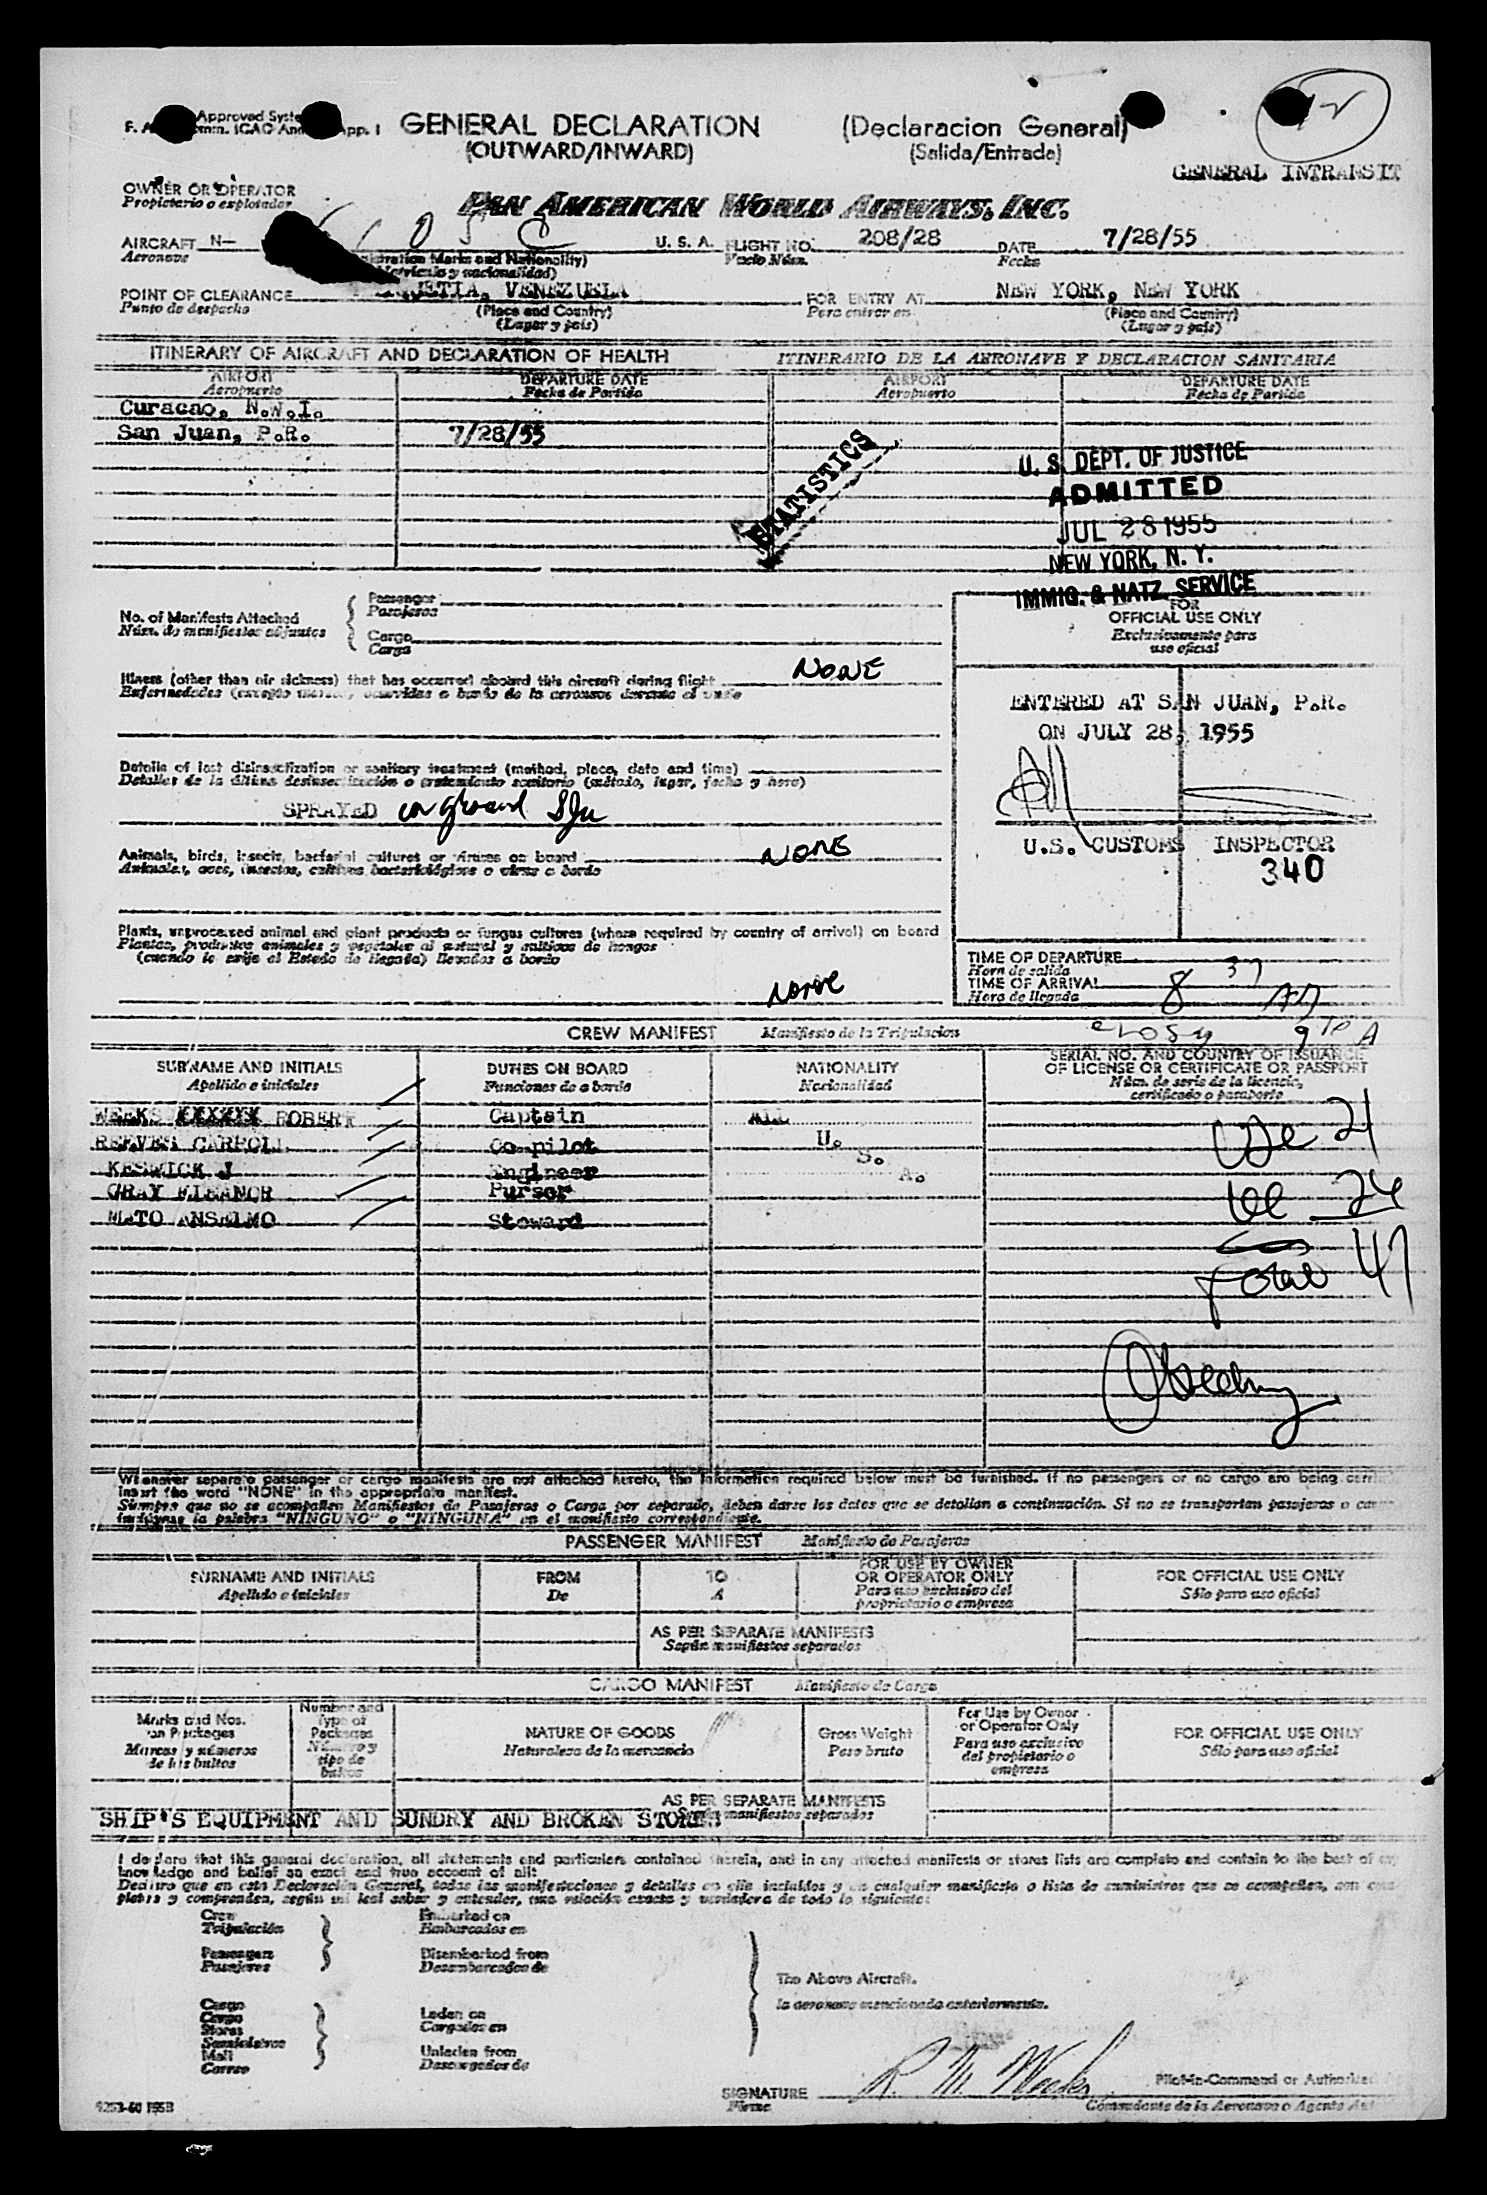 Approved Syste
GENERAL DECLARATION (Declaracion General)
(OUTWARD/INWARD) (Salida/Entrada)
GENERAL INTRANSIT
OWNER OR OPERATOR
Propietario o explotador
PAN AMERICAN WORLD AIRWAYS, INC.
AIRCRAFT N- U. S. A. FLIGHT NO. 208/28 DATE 7/28/55
Aeronave Vuelo Núm. Fecha
(Registration Marks and Nationality)
(Matricula y nacionalidad)
POINT OF CLEARANCE QUETIA, VENEZUELA FOR ENTRY AT NEW YORK, NEW YORK
Punto de despacho (Place and Country) Para entrar en (Place and Country)
(Lugar y país) (Lugar y país)
ITINERARY OF AIRCRAFT AND DECLARATION OF HEALTH ITINERARIO DE LA AERONAVE Y DECLARACION SANITARIA
AIRPORT DEPARTURE DATE AIRPORT DEPARTURE DATE
Aeropuerto Fecha de Partida Aeropuerto Fecha de Partida
Curacao, N.W.I.
San Juan, P.R. 7/28/55
STATISTICS
U. S. DEPT. OF JUSTICE
ADMITTED
JUL 28 1955
NEW YORK, N. Y.
IMMIG. & NATZ. SERVICE
No. of Manifests Attached
Núm. de manifiestos adjuntos
Passenger
Pasajeros
Cargo
Carga
FOR
OFFICIAL USE ONLY
Exclusivamente para
uso oficial
Illness (other than air sickness) that has occurred aboard this aircraft during flight NONE
ENTERED AT SAN JUAN, P.R.
ON JULY 28, 1955
Details of last disinsectization or sanitary treatment (method, place, date and time)
Detalles de la última desinsectización o tratamiento sanitario (método, lugar, fecha y hora)
SPRAYED on ground SJu
U.S. CUSTOMS INSPECTOR
340
Animals, birds, insects, bacterial cultures or viruses on board NONE
Animales, aves, insectos, cultivos bacteriológicos o virus a bordo
Plants, unprocessed animal and plant products or fungus cultures (where required by country of arrival) on board
Plantas, productos animales y vegetales al natural y cultivos de hongos
(cuando lo exija el Estado de llegada) llevados a bordo
None
TIME OF DEPARTURE
Hora de salida
TIME OF ARRIVAL 8 37 AM
Hora de llegada
CREW MANIFEST Manifiesto de la Tripulacion
SURNAME AND INITIALS DUTIES ON BOARD NATIONALITY SERIAL NO. AND COUNTRY OF ISSUANCE
OF LICENSE OR CERTIFICATE OR PASSPORT
Apellido e iniciales Funciones de a bordo Nacionalidad Núm. de serie de la licencia,
certificado o pasaporte
WEEKS XXXXXX ROBERT Captain ALL
REEVES CARROLL Co-pilot U.
S.
KESWICK J Engineer A.
GRAY ELEANOR Purser
MATO ANSELMO Steward
21
24
Total 47
Whenever separate passenger or cargo manifests are not attached hereto, the information required below must be furnished. If no passengers or no cargo are being carri
insert the word "NONE" in the appropriate manifest.
Siempre que no se acompañen Manifiestos de Pasajeros o Carga por separado, deben darse los datos que se detallan a continuación. Si no se transportan pasajeros o
inclúyase la palabra "NINGUNO" o "NINGUNA" en el manifiesto correspondiente.
PASSENGER MANIFEST Manifiesto de Pasajeros
SURNAME AND INITIALS FROM TO FOR USE BY OWNER
OR OPERATOR ONLY FOR OFFICIAL USE ONLY
Apellido e iniciales De A Para uso exclusivo del
propietario o empresa Sólo para uso oficial
AS PER SEPARATE MANIFESTS
Según manifiestos separados
CARGO MANIFEST Manifiesto de Carga
Marks and Nos.
on Packages
Marcas y números
de los bultos
Number and
Type of
Packages
Número y
tipo de
bultos
NATURE OF GOODS
Naturaleza de la mercancia
Gross Weight
Peso bruto
For Use by Owner
or Operator Only
Para uso exclusivo
del propietario o
empresa
FOR OFFICIAL USE ONLY
Sólo para uso oficial
AS PER SEPARATE MANIFESTS
Según manifiestos separados
SHIP'S EQUIPMENT AND SUNDRY AND BROKEN STORES
I declare that this general declaration, all statements and particulars contained therein, and in any attached manifests or stores lists are complete and contain to the best of my
knowledge and belief an exact and true account of all:
Declaro que en esta Declaración General, todas las manifestaciones y detalles en ella incluidos y en cualquier manifiesto o lista de suministros que se acompañen, son
y comprenden, según mi leal saber y entender, una relación exacta y verdadera de todo lo siguiente:
Crew
Tripulación
Passengers
Pasajeros
Embarked on
Embarcados en
Disembarked from
Desembarcados de
Cargo
Carga
Stores
Suministros
Mail
Correo
Laden on
Cargados en
Unladen from
Descargados de
The Above Aircraft.
la aeronave mencionada anteriormente.
SIGNATURE R. M. Weeks
Firma
Pilot-in-Command or Authorized
Comandante de la Aeronave o Agente